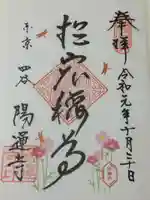 奉拝
令和元年十月三十日
於岩稲荷
東京
四谷
陽運寺